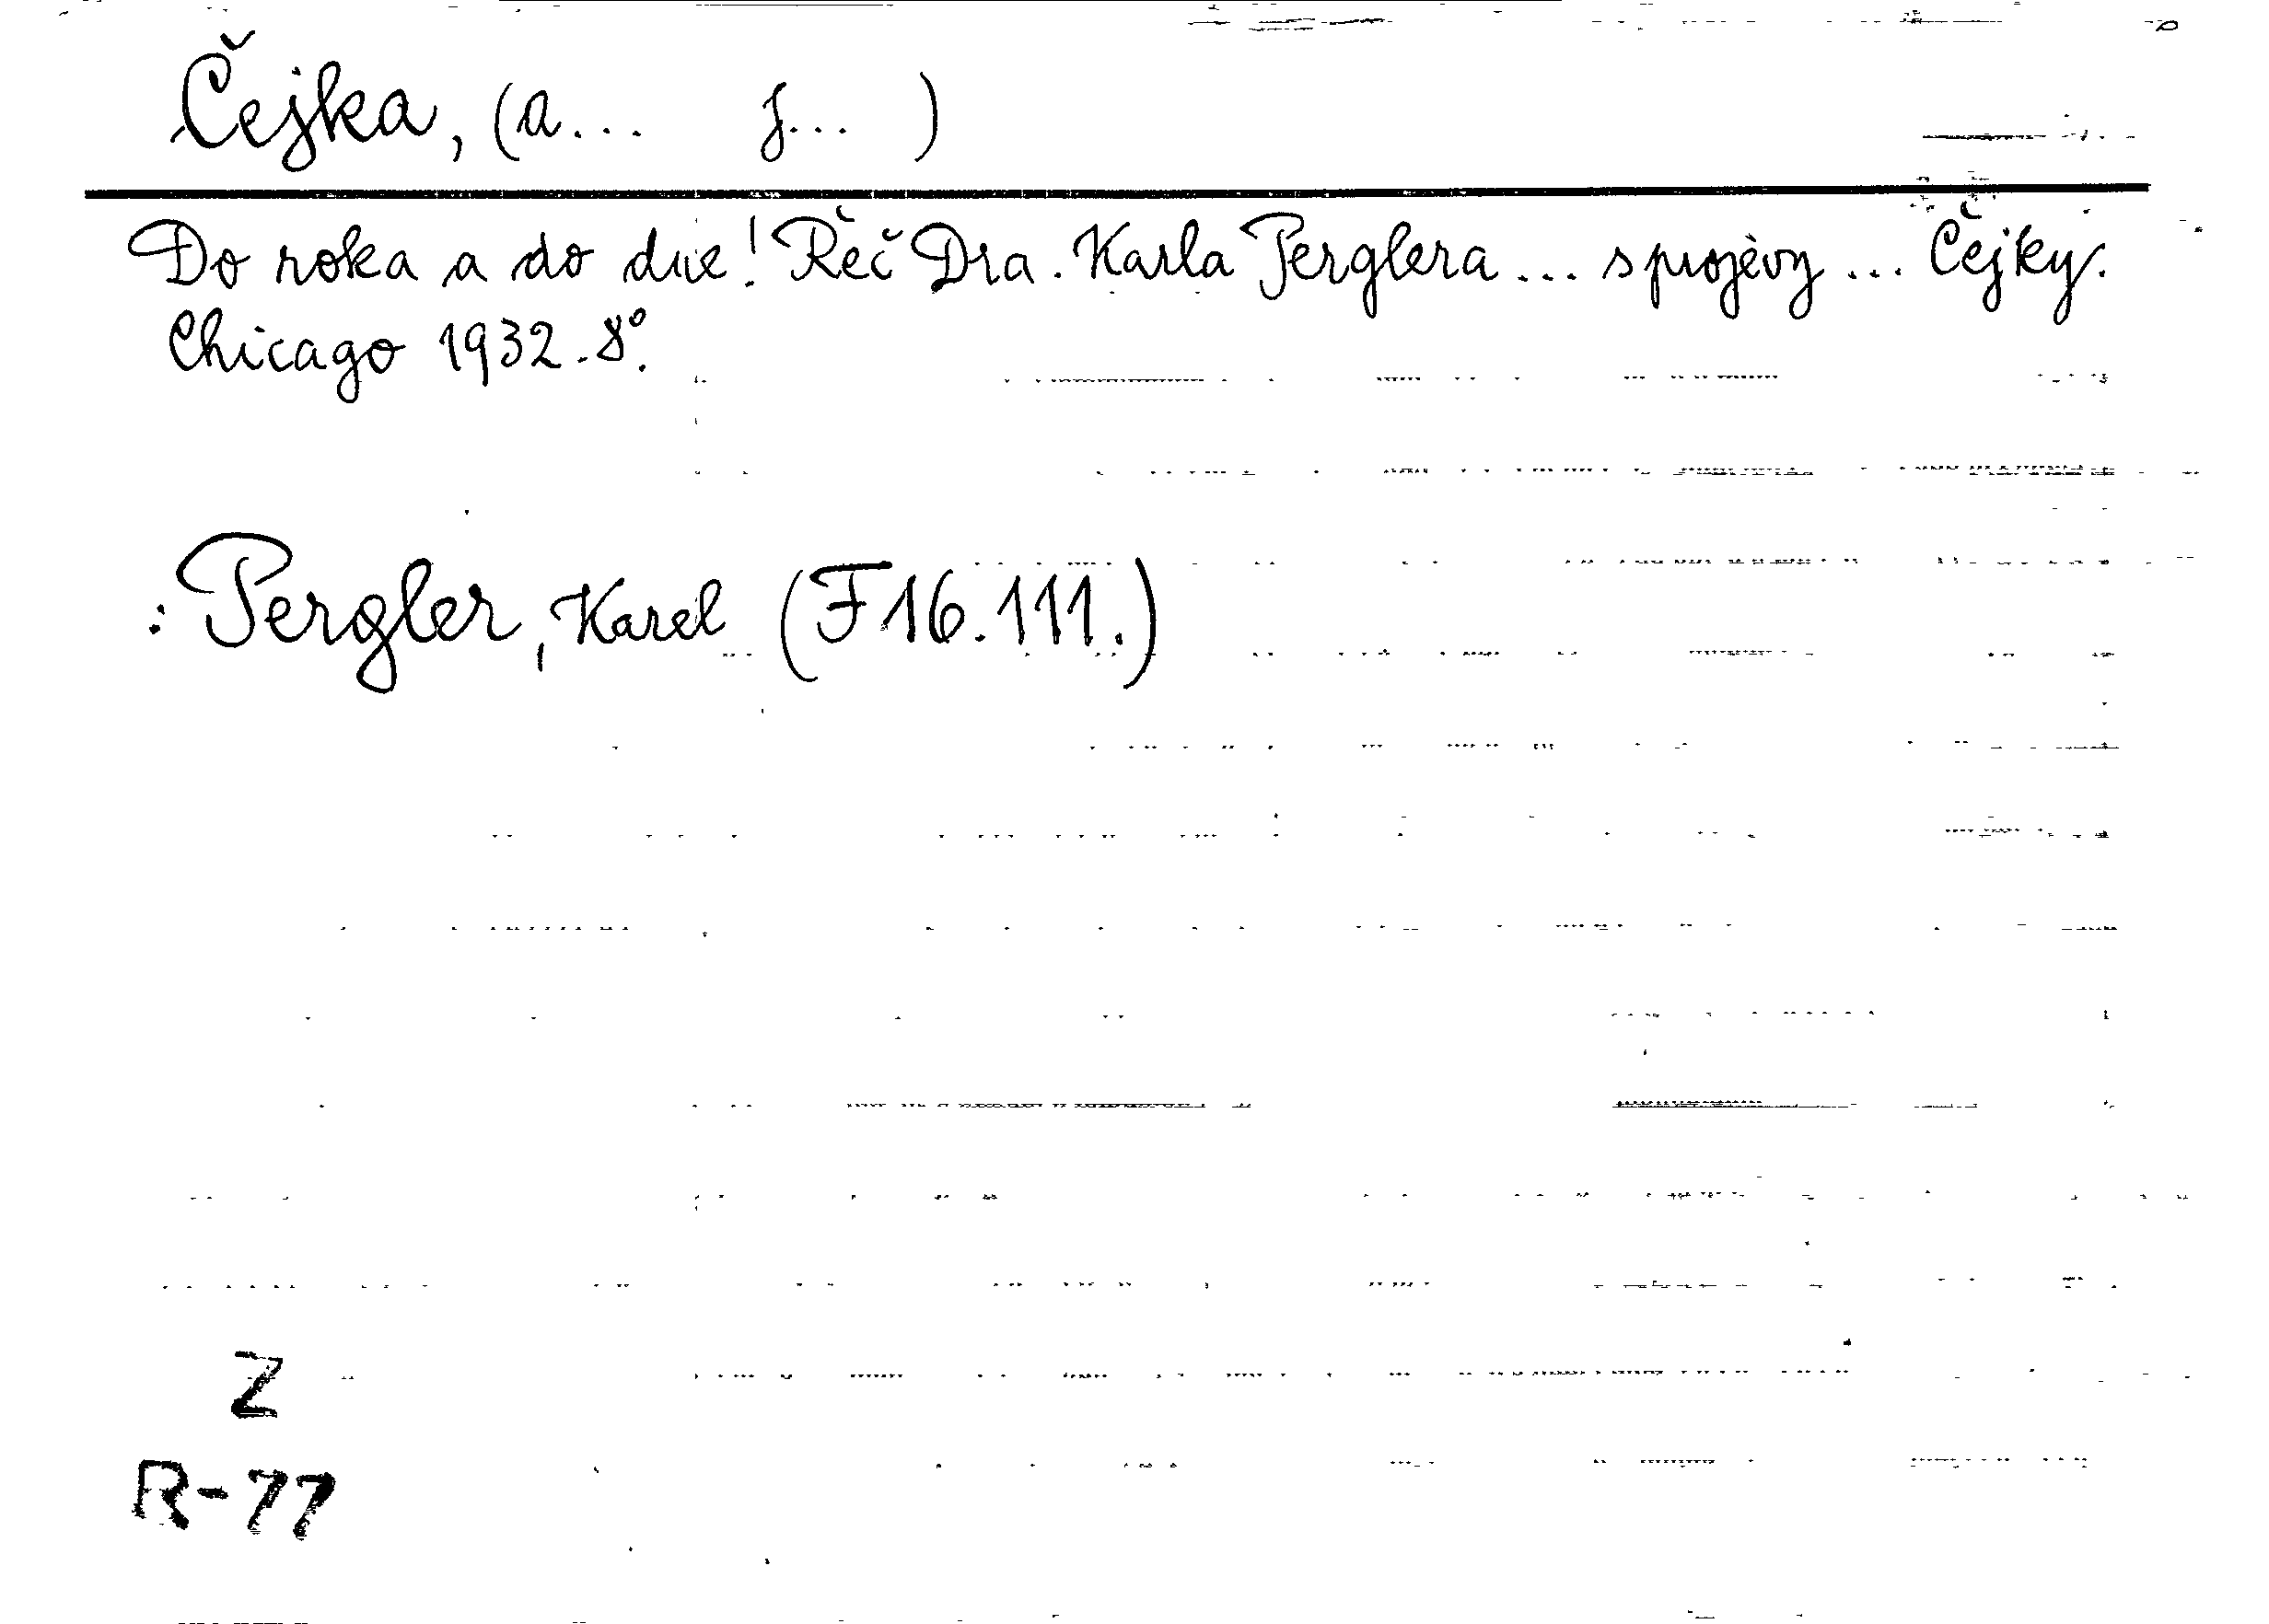 Čejka, (A... J... )
Do roka a do dne! Řeč Dra. Karla Perglera... s projevy... Čejky.
Chicago 1932. 8°.
: Pergler, Karel (F 16.111.)
Z
R-77